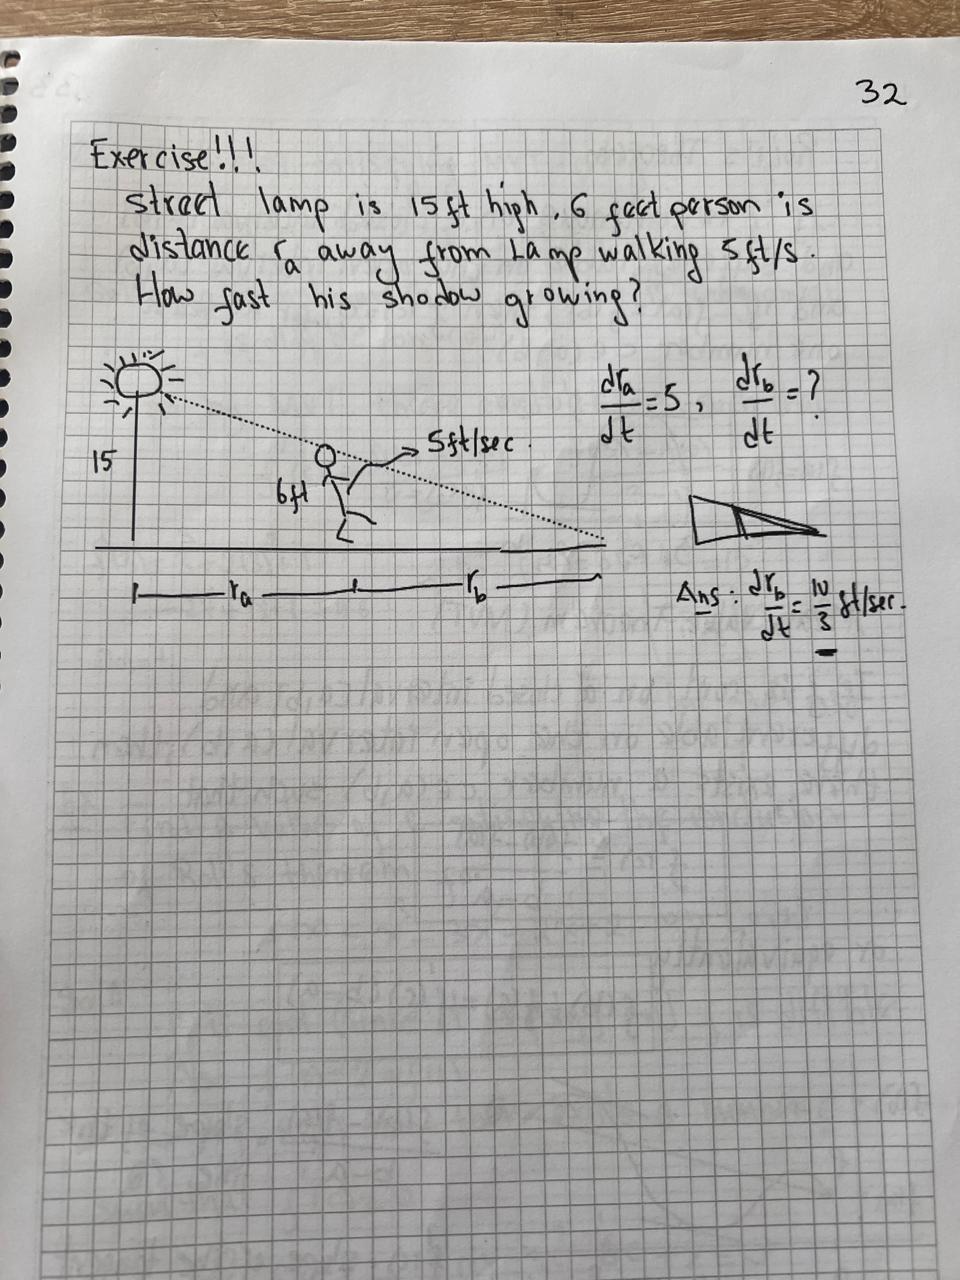 32
Exercise!!!
street lamp is 15ft high, 6 feet person is
distance ra away from Lamp walking 5ft/s.
How fast his shodow growing?
dra/dt = 5, drb/dt = ?
5ft/sec.
15
6ft
ra
rb
Ans: drb/dt = 10/3 ft/sec.